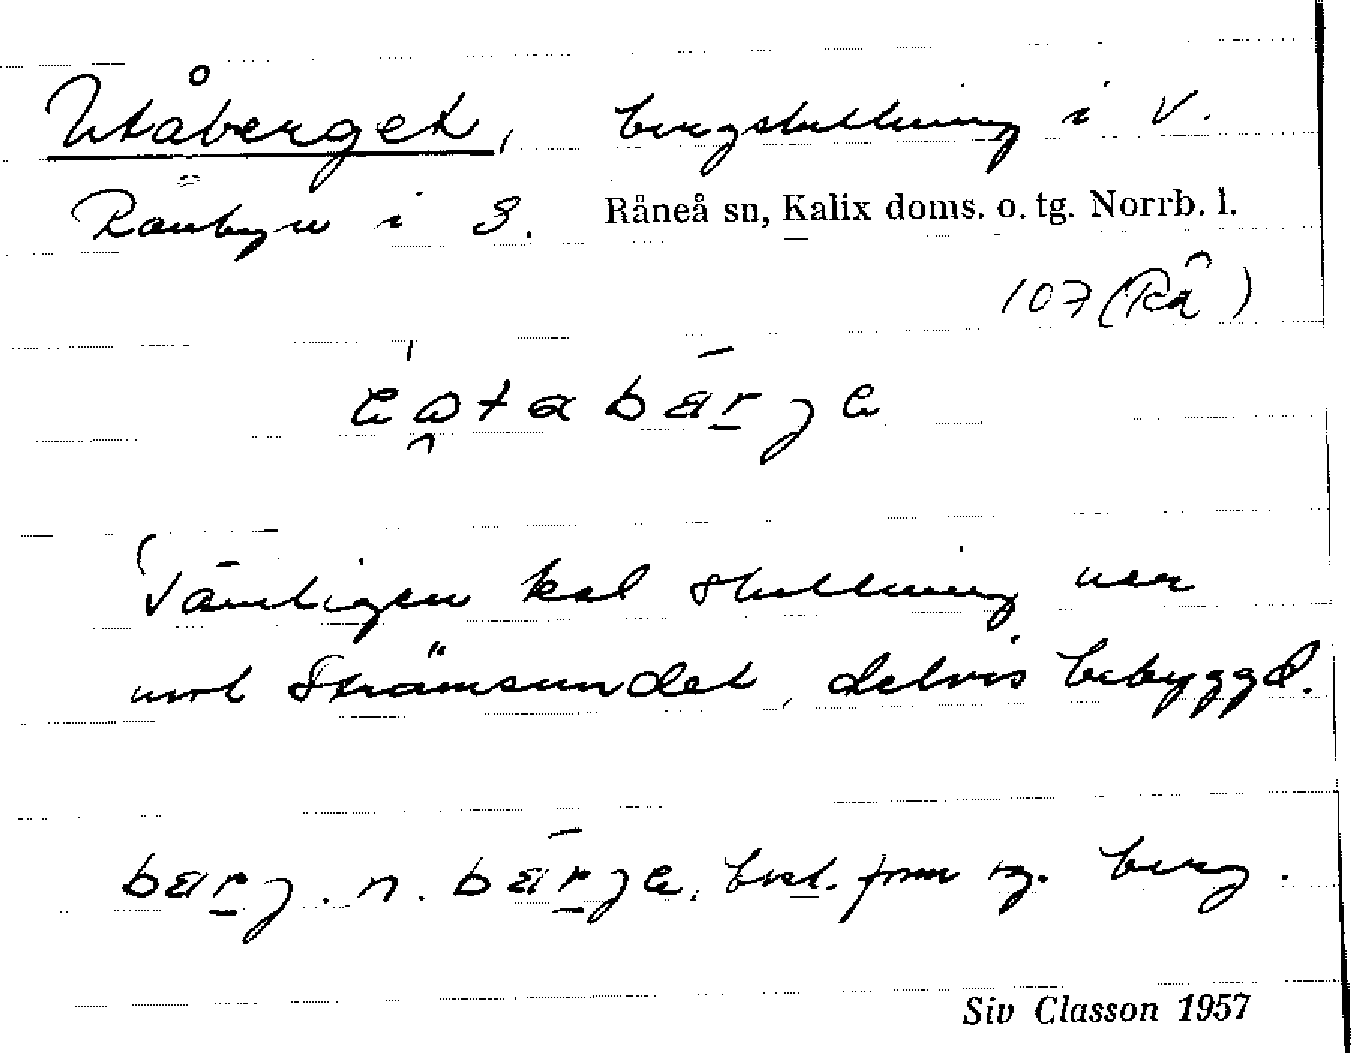 Utåberget, bergsluttning i V.
Rånbyn i S. Råneå sn, Kalix doms. o. tg. Norrb. l.
107 (Rå)
Tämligen kal sluttning ner
mot Strömsundet, delvis bebyggd.
bärj. n. bärje, best. form sg. berg.
Siv Classon 1957